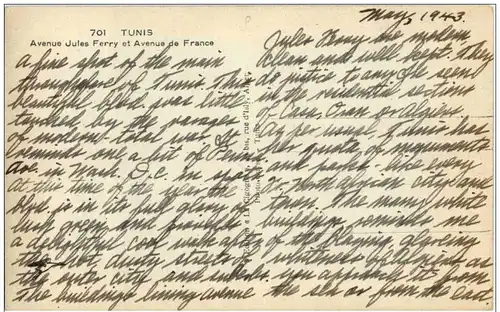 May, 1943.
701 TUNIS
Avenue Jules Ferry et Avenue de France
a fine shot of the main
thoroughfare of Tunis. This
beautiful blvd. was little
touched by the ravages
of modern war. It
reminds one a bit of Penn.
Ave. in Wash. D.C. In
at this time of the year the
blvd. is in its full glory of
lush green and
a delightful cool
the hot, dusty streets of
the city and
The buildings lining avenue
Jules Ferry are modern
clean and well kept. They
do justice to any I've seen
in the residential sections
of Casa, Oran or Algiers.
As per usual, Tunis has
her quota of monuments
and parks like every
North African city and
town. The many white
buildings reminds me
of the blazing, glaring
whiteness of Algiers as
you approach it from
the sea or from the east.